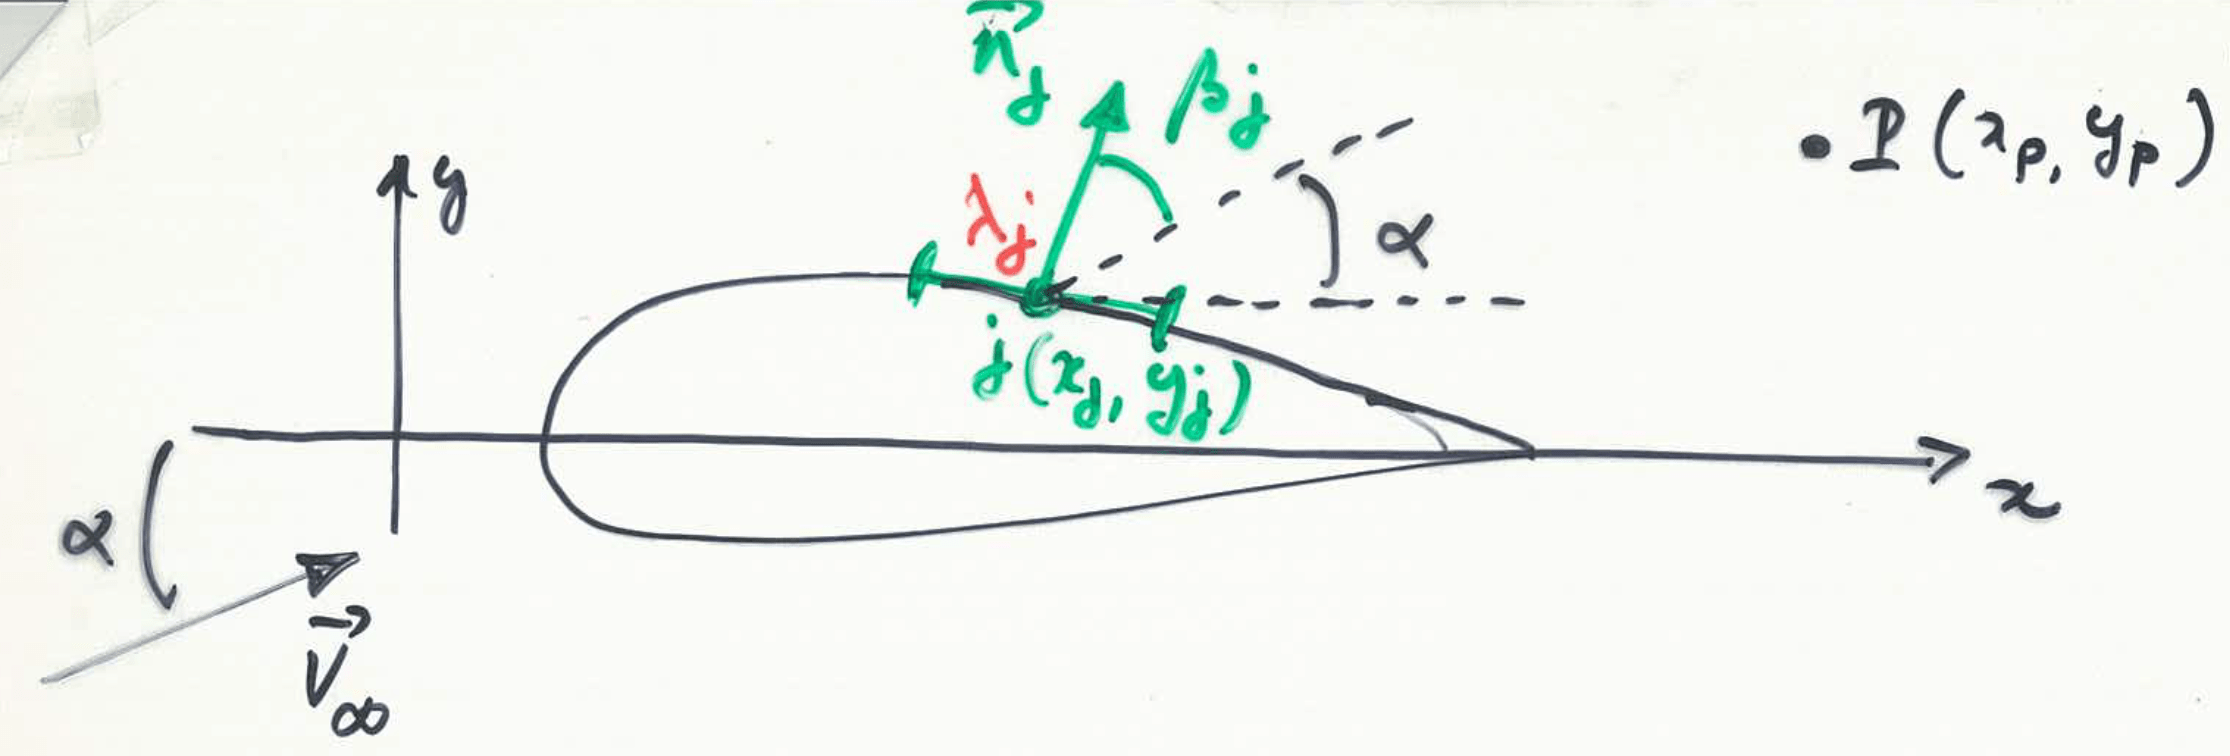 n⃗_j
β_j
• P (x_p, y_p)
y
λ_j
α
j (x_j, y_j)
x
α
V⃗_∞